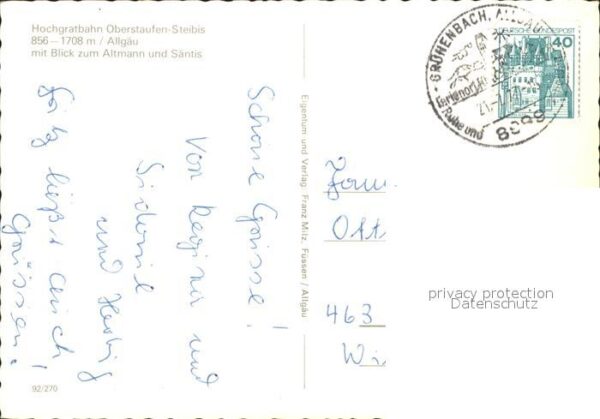 Hochgratbahn Oberstaufen-Steibis
856 – 1708 m / Allgäu
mit Blick zum Altmann und Säntis
Schöne Grüsse!
Von Regina und
Sidonie
und
läßt auch
Grüssen!
92/270
Eigentum und Verlag Franz Milz, Füssen / Allgäu
GRÜNENBACH, ALLGÄU
Ferienort
Ruhe und
8999
DEUTSCHE BUNDESPOST
40
Fam
Ost
463
Wi
privacy protection
Datenschutz